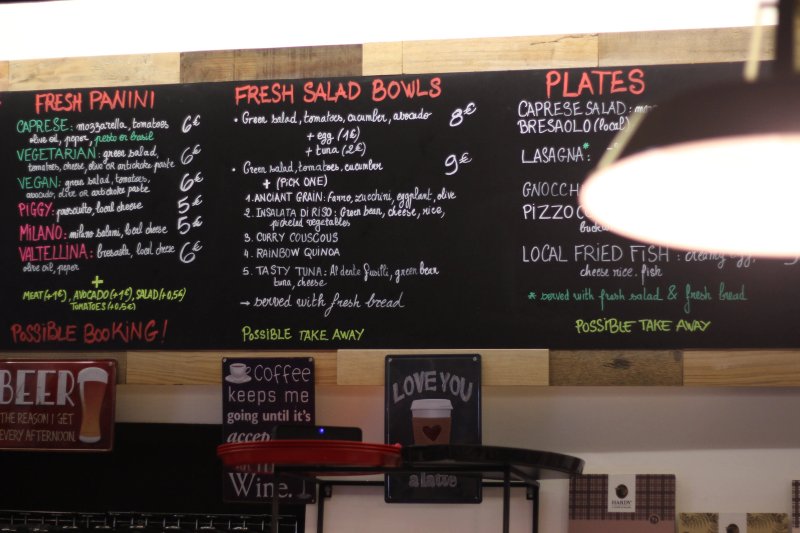 FRESH PANINI
CAPRESE: mozzarella, tomatoes 6€
olive oil, peper, pesto or basil
VEGETARIAN: green salad, 6€
tomatoes, cheese, olive or artichoke paste
VEGAN: green salad, tomatoes, 6€
avocado, olive or artichoke paste
PIGGY: prosciutto, local cheese 5€
MILANO: milano salami, local cheese 5€
VALTELLINA: bresaola, local cheese 6€
olive oil, peper
+
MEAT (+1€), AVOCADO (+1€), SALAD (+0,5€)
TOMATOES (+0,5€)
POSSIBLE BOOKING!
FRESH SALAD BOWLS
• Green salad, tomatoes, cucumber, avocado 8€
+ egg (1€)
+ tuna (2€)
• Green salad, tomatoes, cucumber 9€
+ (PICK ONE)
1. ANCIANT GRAIN: Farro, zucchini, eggplant, olive
2. INSALATA DI RISO: Green bean, cheese, rice,
pickeled vegetables
3. CURRY COUSCOUS
4. RAINBOW QUINOA
5. TASTY TUNA: Al dente fusilli, green bean
tuna, cheese
→ served with fresh bread
POSSIBLE TAKE AWAY
PLATES
CAPRESE SALAD:
BRESAOLO (local)
LASAGNA*:
GNOCCH
PIZZOC
LOCAL FRIED FISH: creamy egg,
cheese rice, fish
* served with fresh salad & fresh bread
POSSIBLE TAKE AWAY
BEER
THE REASON I GET
EVERY AFTERNOON
Coffee
keeps me
going until it's
Wine.
LOVE YOU
a latte
HANDY